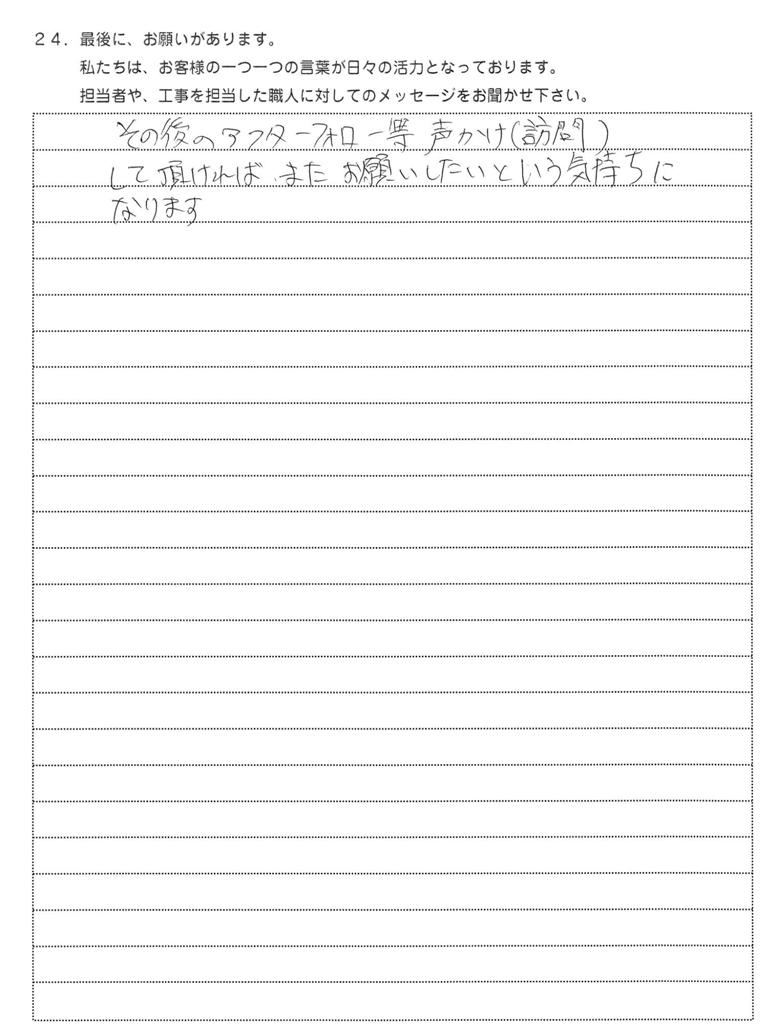 ２４．最後に、お願いがあります。
私たちは、お客様の一つ一つの言葉が日々の活力となっております。
担当者や、工事を担当した職人に対してのメッセージをお聞かせ下さい。
その後のアフターフォロー等 声かけ(訪問)
して頂ければ、また お願いしたいという気持ちに
なります